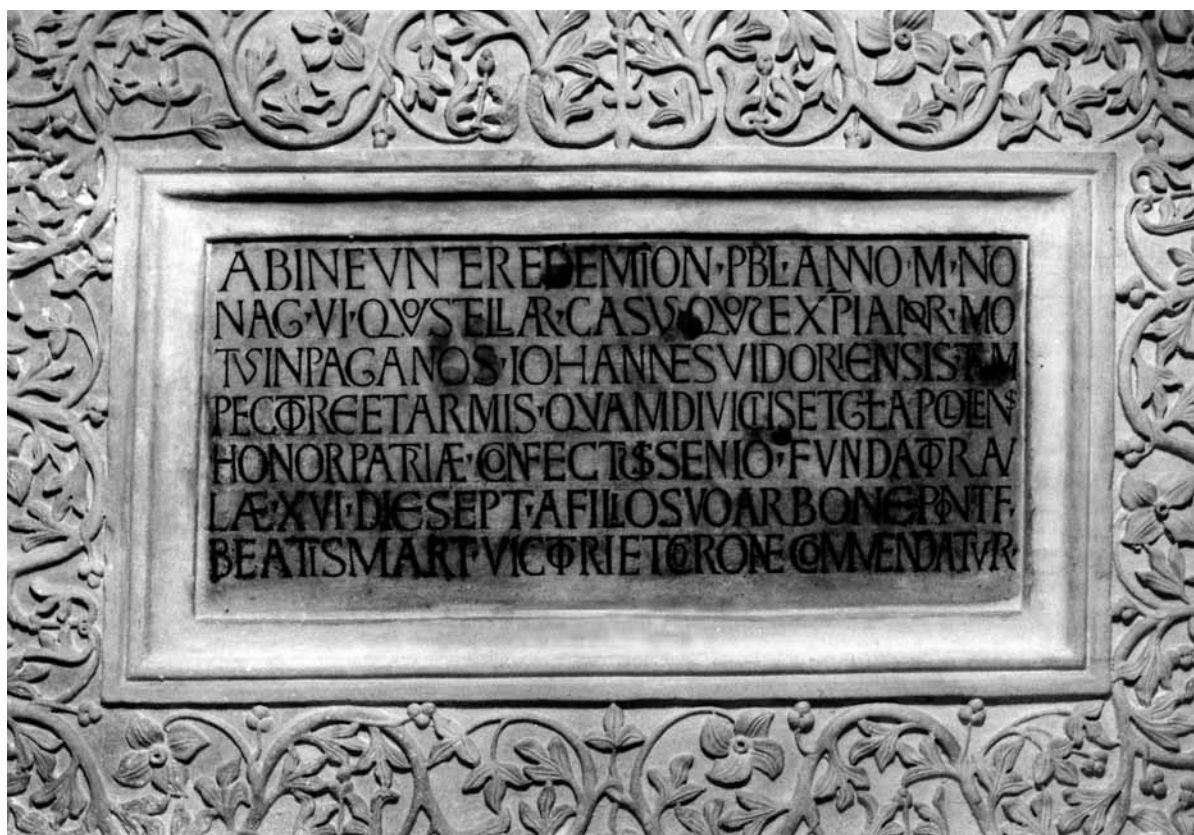 ABINEVNTEREDEMTION·PBL·ANNO·M·NO
NAG·VI·QVO STELLAR·CASV·QVOR EXPIANOR·MO
TVS IN PAGANOS·IOHANNES VIDORIENSIS·TAM
PECTORE ET ARMIS·QVAM DIVICIIS ET
HONOR PATRIÆ·CONFECTUS SENIO·FVNDATOR AV
LÆ·XVI·DIE SEPT·A FILLO SVO ARBONE·PONTF·
BEATIS MART·VICTORI ET CORONE COMMENDATVR·